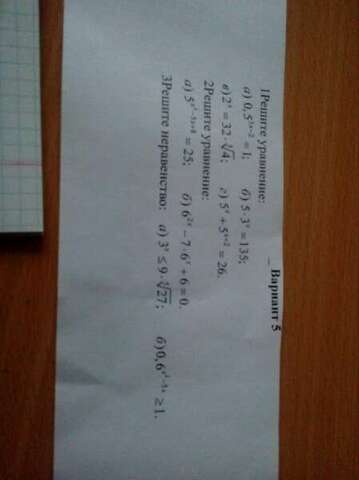 Вариант 5
1Решите уравнение:
а) 0,5^{3x-2} = 1; б) 5 · 3^x = 135;
в) 2^x = 32 · ∛4; г) 5^x + 5^{x+2} = 26.
2Решите уравнение:
а) 5^{x²-5x+8} = 25; б) 6^{2x} − 7 · 6^x + 6 = 0.
3Решите неравенство: а) 3^x ≤ 9 · ⁴√27; б) 0,6^{x²-5x} ≥ 1.